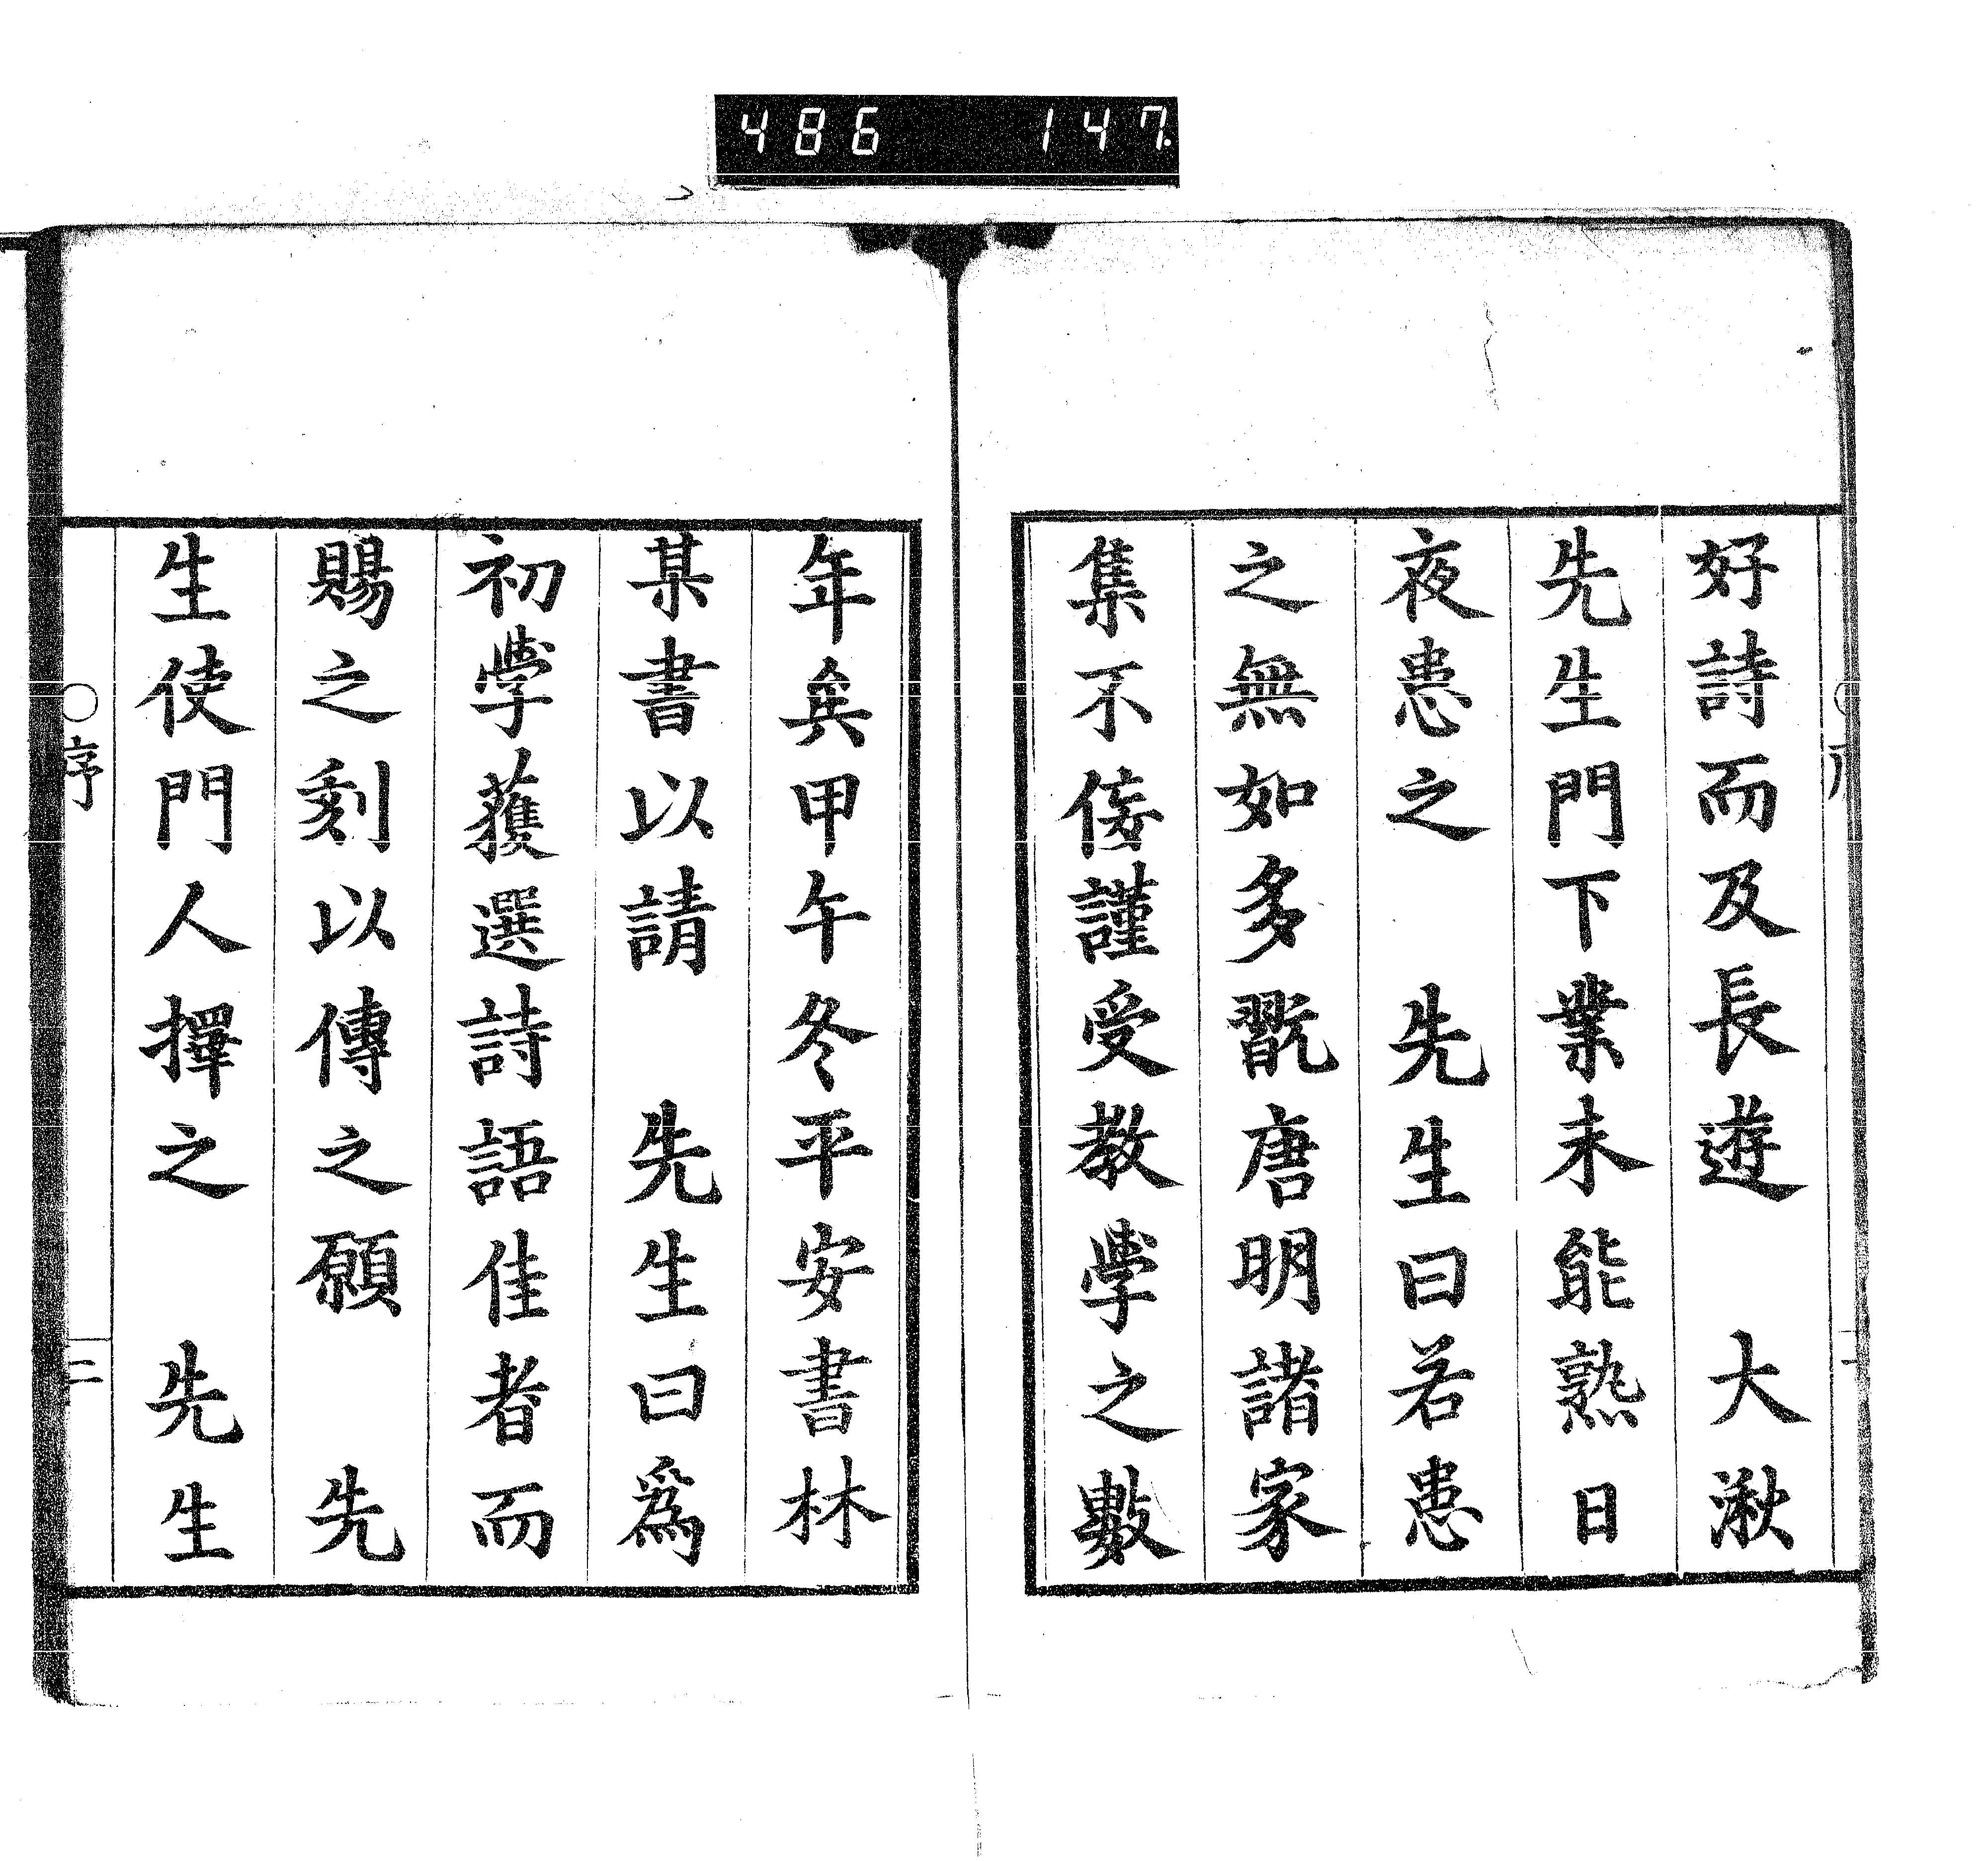 486 147.
好詩而及長遊　大湫
先生門下業未能熟日
夜患之　先生曰若患
之無如多翫唐明諸家
集不佞謹受教學之數
年矣甲午冬平安書林
某書以請　先生曰爲
初學蒐選詩語佳者而
賜之刻以傳之願　先
生使門人擇之　先生
○序
二